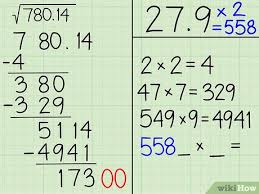 √780.14
7 80.14
-4
3 80
-3 29
5114
-4941
173 00
27.9 × 2
=558
2 × 2 = 4
47 × 7 = 329
549 × 9 = 4941
558_ × _ =
wikiHow